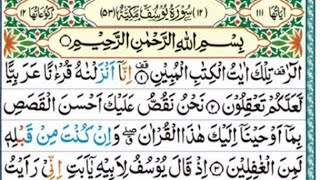 اٰيَاتُهَا ١١١ (١٢) سُوْرَةُ يُوْسُفَ مَكِّيَّةٌ (٥٣) رُكُوْعَاتُهَا ١٢
بِسْمِ اللّٰهِ الرَّحْمٰنِ الرَّحِيْمِ
الٓرٰ تِلْكَ اٰيٰتُ الْكِتٰبِ الْمُبِيْنِ ۝١ اِنَّآ اَنْزَلْنٰهُ قُرْءٰنًا عَرَبِيًّا
لَّعَلَّكُمْ تَعْقِلُوْنَ ۝٢ نَحْنُ نَقُصُّ عَلَيْكَ اَحْسَنَ الْقَصَصِ
بِمَآ اَوْحَيْنَآ اِلَيْكَ هٰذَا الْقُرْاٰنَ وَاِنْ كُنْتَ مِنْ قَبْلِهٖ
لَمِنَ الْغٰفِلِيْنَ ۝٣ اِذْ قَالَ يُوْسُفُ لِاَبِيْهِ يٰٓاَبَتِ اِنِّيْ رَاَيْتُ